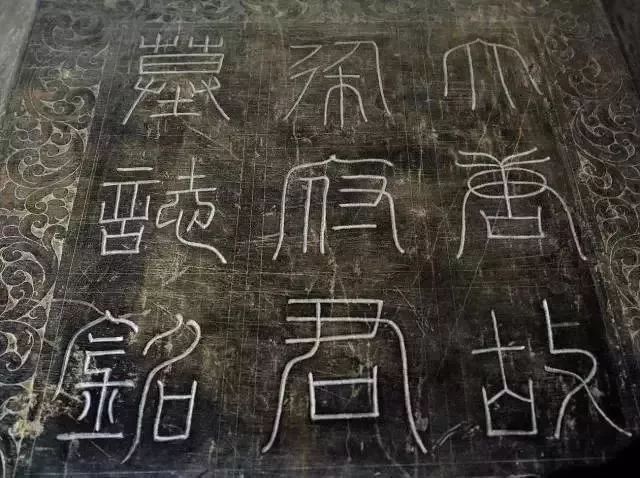 大唐故
梁府君
墓誌銘